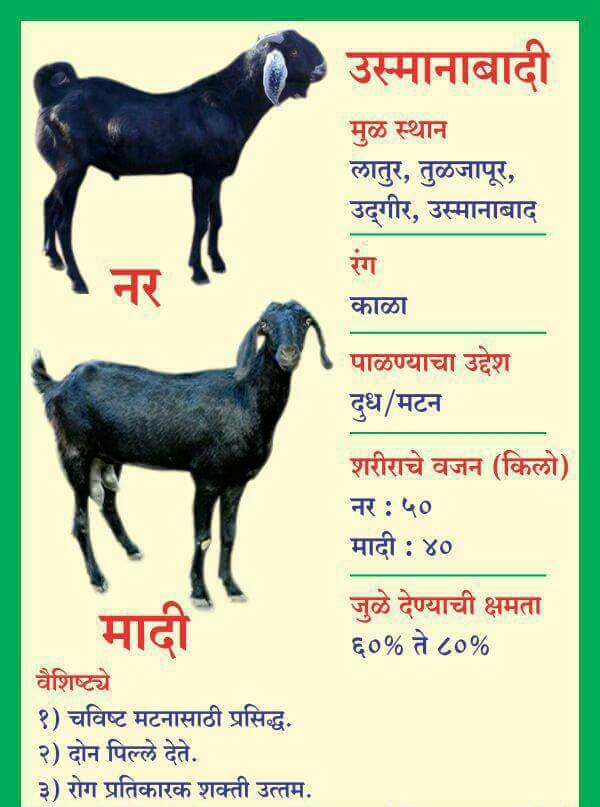 उस्मानाबादी
मुळ स्थान
लातुर, तुळजापूर,
उद्‌गीर, उस्मानाबाद
रंग
काळा
पाळण्याचा उद्देश
दुध/मटन
शरीराचे वजन (किलो)
नर : ५०
मादी : ४०
जुळे देण्याची क्षमता
६०% ते ८०%
नर
मादी
वैशिष्ट्ये
१) चविष्ट मटनासाठी प्रसिद्ध.
२) दोन पिल्ले देते.
३) रोग प्रतिकारक शक्ती उत्तम.